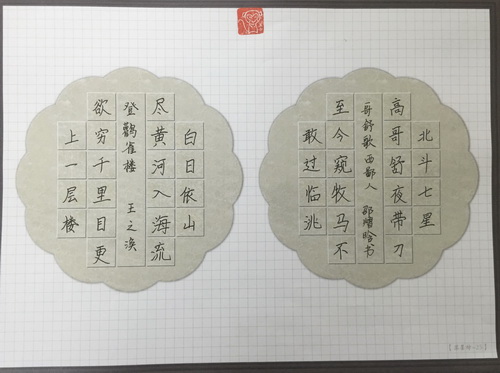 白日依山
尽黄河入海流
登鹳雀楼 王之涣
欲穷千里目更
上一层楼
北斗七星
高哥舒夜带刀
哥舒歌 西鄙人 邵书
至今窥牧马不
敢过临洮